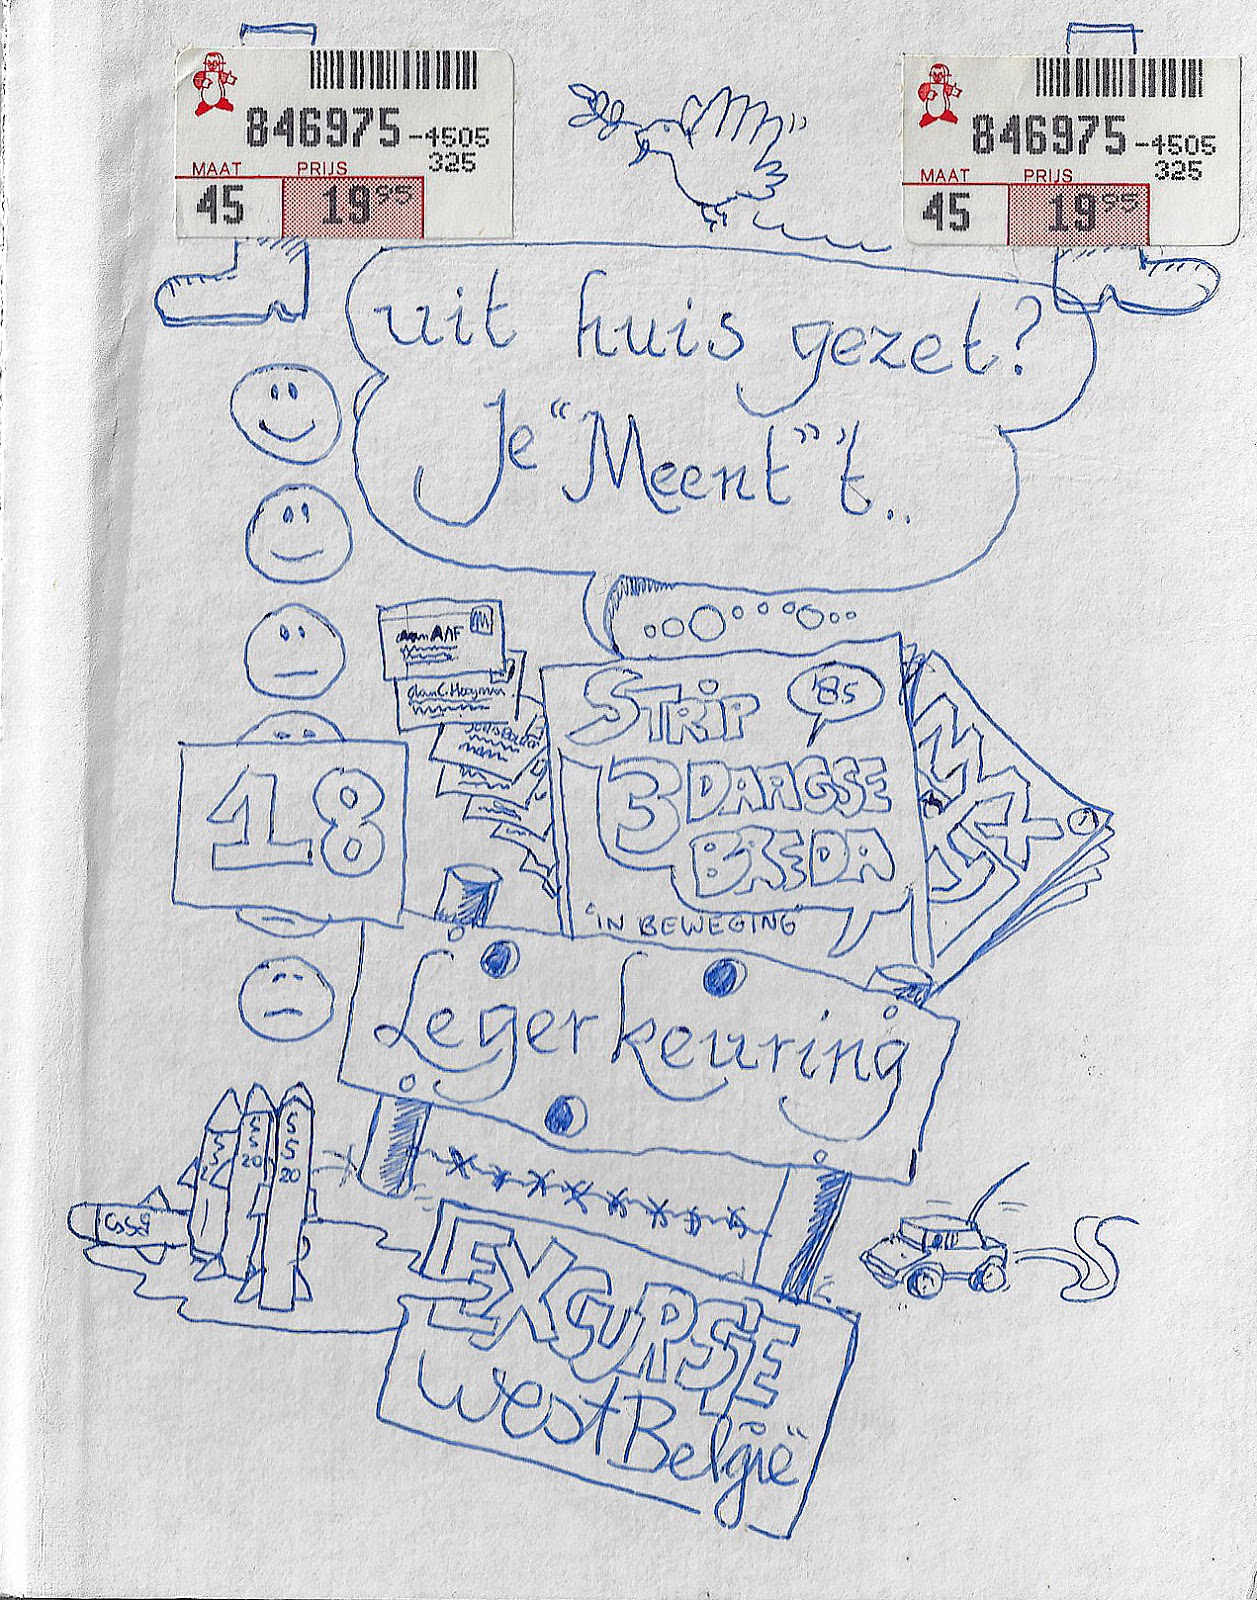 846975-4505
325
MAAT PRIJS
45 19 95
846975-4505
325
MAAT PRIJS
45 19 95
uit huis gezet?
Je "Meent" 't..
aan AAF
aan C. Hooyman
STRIP '85
3 DAAGSE
BREDA
"IN BEWEGING"
18
Legerkeuring
SS 20
SS 20
SS 20
EXCURSIE
West België